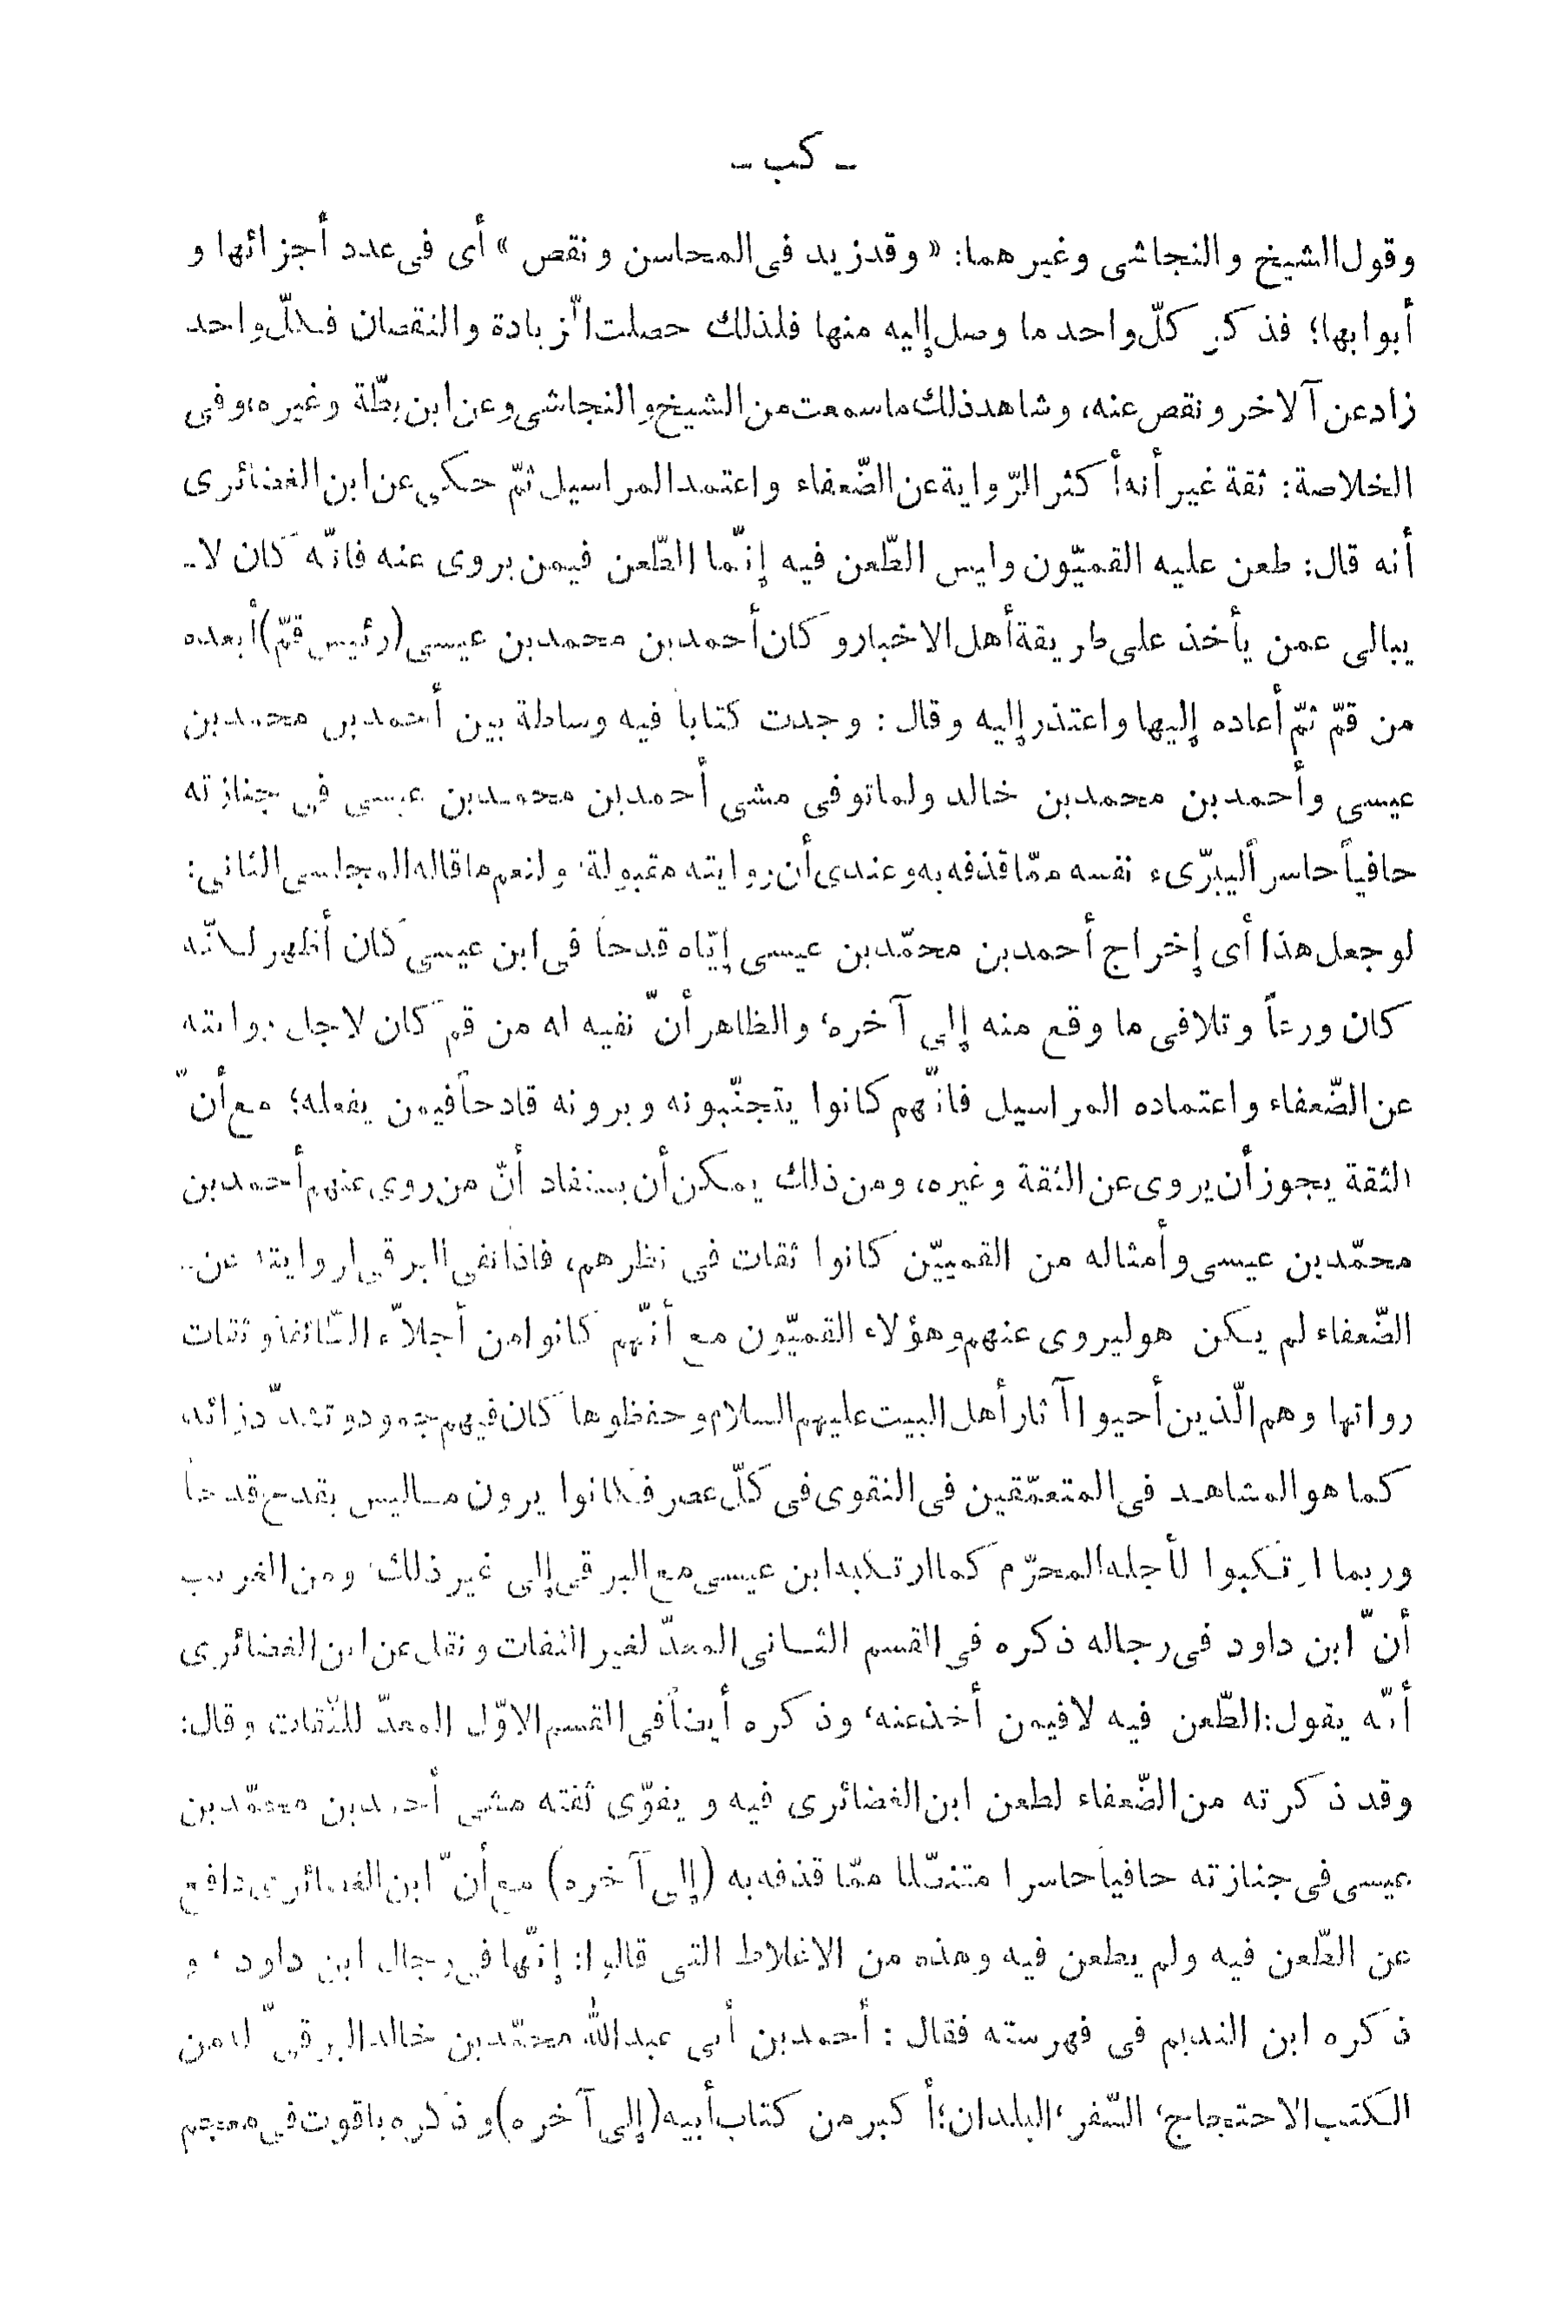 ـ كب ـ
وقول الشيخ والنجاشى وغيرهما: «وقدزيد فى المحاسن ونقص» أى فى عدد أجزائها و
أبوابها؛ فذكر كلّ واحد ما وصل إليه منها فلذلك حصلت الزّيادة والنقصان فكلّ واحد
زاد عن آلاخر ونقص عنه، وشاهد ذلك ما سمعت من الشيخ والنجاشى وعن ابن بطّة وغيره، وفى
الخلاصة: ثقة غير أنه أكثر الرّواية عن الضّعفاء واعتمد المراسيل ثمّ حكى عن ابن الغضائرى
أنه قال: طعن عليه القميّون وليس الطّعن فيه إنّما الطّعن فيمن يروى عنه فانّه كان لا ـ
يبالى عمن يأخذ على طريقة أهل الاخبار و كان أحمدبن محمدبن عيسى (رئيس قمّ) أبعده
من قمّ ثمّ أعاده إليها واعتذر إليه وقال: وجدت كتاباً فيه وساطة بين أحمدبن محمدبن
عيسى وأحمدبن محمدبن خالد ولما توفى مشى أحمدبن محمدبن عيسى فى جنازته
حافياً حاسراً ليبرّىء نفسه ممّا قذفه به وعندى أن روايته مقبولة؛ ولنعم ما قاله المجلسى الثانى:
لو جعل هذا أى إخراج أحمدبن محمّدبن عيسى إيّاه قدحاً فى ابن عيسى كان أظهر لكنّه
كان ورعاً وتلافى ما وقع منه إلى آخره؛ والظاهر أنّ نفيه له من قم كان لاجل روايته
عن الضّعفاء واعتماده المراسيل فانّهم كانوا يتجنّبونه ويرونه قادحاً فيمن يفعله؛ مع أنّ
الثقة يجوز أن يروى عن الثقة وغيره، ومن ذلك يمكن أن يستفاد أنّ من روى عنهم أحمدبن
محمّدبن عيسى وأمثاله من القمييّن كانوا ثقات فى نظرهم، فاذا نفى البرقى لروايته عن ـ
الضّعفاء لم يكن هو ليروى عنهم وهؤلاء القميّون مع أنّهم كانوا من أجلاّء الطّائفة وثقات
رواتها وهم الّذين أحيوا آثار أهل البيت عليهم السلام وحفظوها كان فيهم جمود وتشدّد زائد
كما هو المشاهد فى المتعمّقين فى التقوى فى كلّ عصر فكانوا يرون ما ليس بقدح قدحاً
وربما ارتكبوا لأجله المحرّم كما ارتكبه ابن عيسى مع البرقى إلى غير ذلك؛ ومن الغريب
أنّ ابن داود فى رجاله ذكره فى القسم الثانى المعدّ لغير الثقات ونقل عن ابن الغضائرى
أنّه يقول: الطّعن فيه لا فيمن أخذ عنه؛ وذكره أيضاً فى القسم الاوّل المعدّ للثّقات وقال:
وقد ذكرته من الضّعفاء لطعن ابن الغضائرى فيه ويقوّى ثقته مشى أحمدبن محمّدبن
عيسى فى جنازته حافياً حاسرا متنصّلا ممّا قذفه به (إلى آخره) مع أنّ ابن الغضائرى دافع
عن الطّعن فيه ولم يطعن فيه وهذه من الاغلاط التى قالوا: إنّها فى رجال ابن داود؛ و
ذكره ابن النديم فى فهرسته فقال: أحمدبن أبى عبدالله محمّدبن خالد البرقىّ له من
الكتب الاحتجاج؛ السّفر؛ البلدان؛ أكبر من كتاب أبيه (إلى آخره) وذكره ياقوت فى معجم